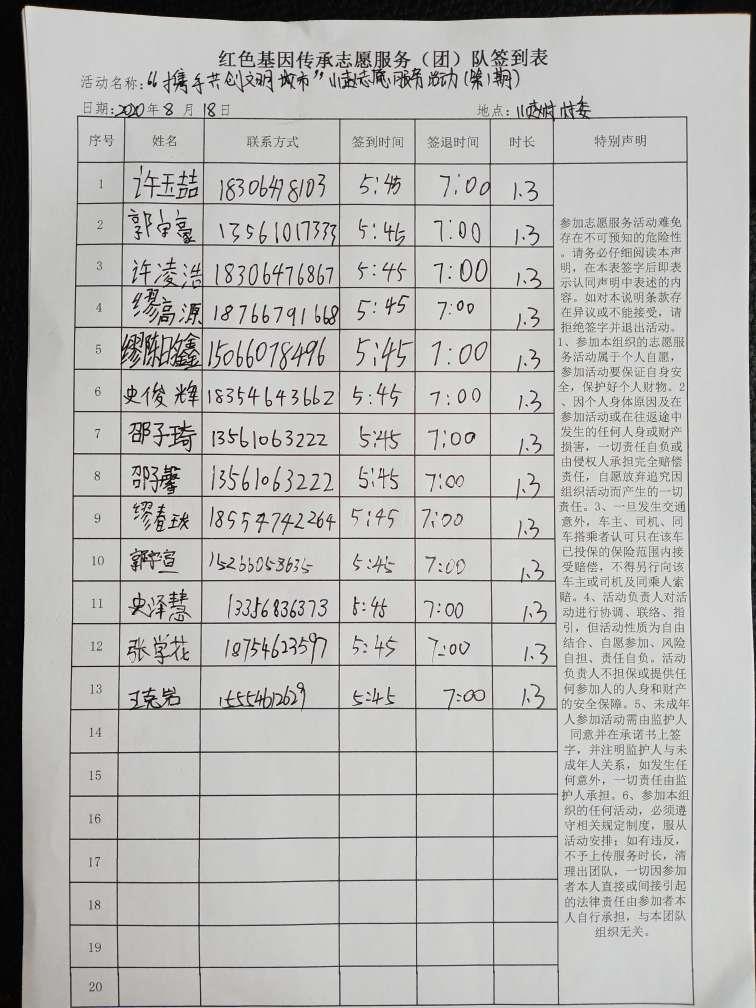 红色基因传承志愿服务（团）队签到表
活动名称：“携手共创文明城市”小赵志愿服务活动（第1期）
日期：2020年8月18日 地点：小赵村村委
序号 姓名 联系方式 签到时间 签退时间 时长 特别声明
1 许玉喆 18306478103 5:45 7:00 1.3
2 郭宇豪 13561017333 5:45 7:00 1.3
3 许凌浩 18306476867 5:45 7:00 1.3
4 缪高源 18766791668 5:45 7:00 1.3
5 缪陈鑫 15066078496 5:45 7:00 1.3
6 史俊辉 18354643662 5:45 7:00 1.3
7 邵子琦 13561063222 5:45 7:00 1.3
8 邵子馨 13561063222 5:45 7:00 1.3
9 缪春 18554742264 5:45 7:00 1.3
10 郭宇宣 15266053635 5:45 7:00 1.3
11 史泽慧 13356836373 5:45 7:00 1.3
12 张学花 18754623597 5:45 7:00 1.3
13 王克岩 15554612629 5:45 7:00 1.3
14
15
16
17
18
19
20
参加志愿服务活动难免
存在不可预知的危险性
。请务必仔细阅读本声
明，在本表签字后即表
示认同声明中表述的内
容。如对本说明条款存
在异议或不能接受，请
拒绝签字并退出活动。
1、参加本组织的志愿服
务活动属于个人自愿，
参加活动要保证自身安
全，保护好个人财物。2
、因个人身体原因及在
参加活动或在往返途中
发生的任何人身或财产
损害，一切责任自负或
由侵权人承担完全赔偿
责任，自愿放弃追究因
组织活动而产生的一切
责任。3、一旦发生交通
意外，车主、司机、同
车搭乘者认可只在该车
已投保的保险范围内接
受赔偿，不得另行向该
车主或司机及同乘人索
赔。4、活动负责人对活
动进行协调、联络、指
引，但活动性质为自由
结合、自愿参加、风险
自担、责任自负。活动
负责人不担保或提供任
何参加人的人身和财产
的安全保障。5、未成年
人参加活动需由监护人
同意并在承诺书上签
字，并注明监护人与未
成年人关系，如发生任
何意外，一切责任由监
护人承担。6、参加本组
织的任何活动，必须遵
守相关规定制度，服从
活动安排；如有违反，
不予上传服务时长，清
理出团队，一切因参加
者本人直接或间接引起
的法律责任由参加者本
人自行承担，与本团队
组织无关。